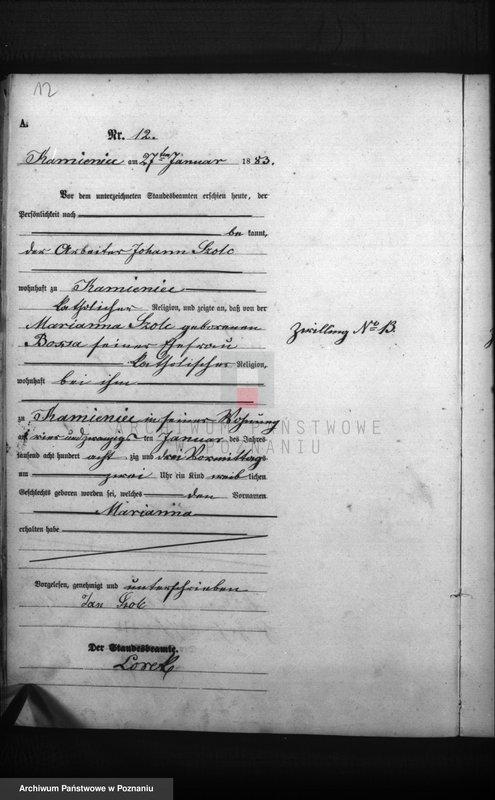 12
A.
Nr. 12.
Kamieniec am 27ten Januar 1883.
Vor dem unterzeichneten Standesbeamten erschien heute, der
Persönlichkeit nach
be kannt,
der Arbeiter Johann Szolc
wohnhaft zu Kamieniec
katholischer Religion, und zeigte an, daß von der
Marianna Szolc geborenen
Bossa seiner Ehefrau
katholischer Religion,
wohnhaft bei ihm
zu Kamieniec in seiner Wohnung
am vier und zwanzigs ten Januar des Jahres
tausend acht hundert acht zig und drei Vormittag
um zwei Uhr ein Kind weib lichen
Geschlechts geboren worden sei, welches den Vornamen
Marianna
erhalten habe
Vorgelesen, genehmigt und unterschrieben
Jan Szolc
Der Standesbeamte.
Lorek
Zwilling No. 13.
ARCHIWUM PAŃSTWOWE
W POZNANIU
Archiwum Państwowe w Poznaniu